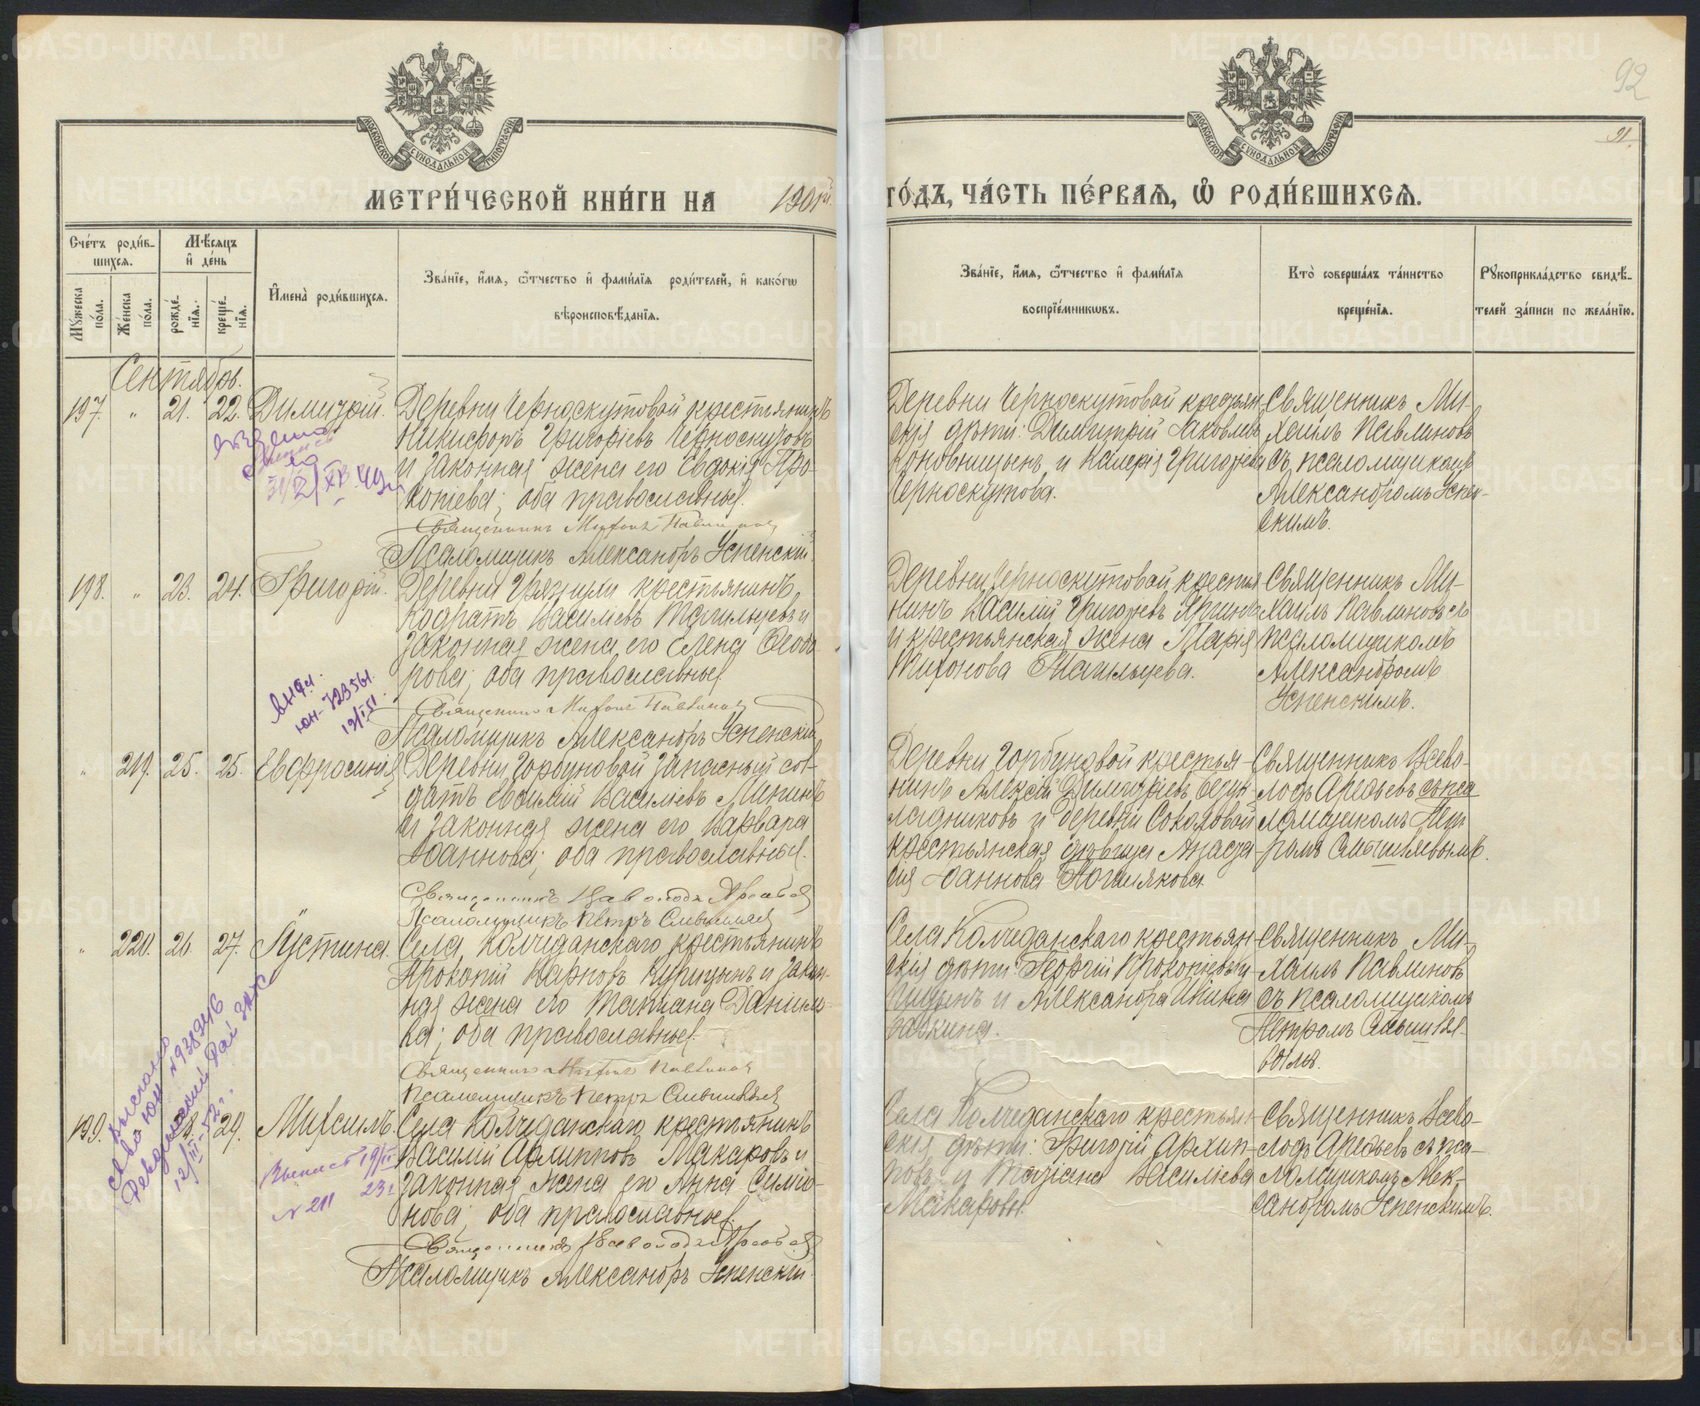 92
91.
МЕТРИ́ЧЕСКОЙ КНИ́ГИ НА 1901й.
ГО́ДЪ, ЧА́СТЬ ПЕ́РВАѦ, Ѽ РОДИ́ВШИХСѦ.
Сче́тъ роди́в-
шихсѧ.
Мꙋ́жеска
по́ла.
Же́нска
по́ла.
Мѣ́сѧцъ
и҆ де́нь
рожде́-
нїѧ.
креще́-
нїѧ.
И҆мена̀ роди́вшихсѧ.
Зва́нїе, и҆́мѧ, ѻ҆́тчество и҆ фами́лїѧ роди́телей, и҆ како́гѡ
вѣроисповѣ́данїѧ.
Зва́нїе, и҆́мѧ, ѻ҆́тчество и҆ фами́лїѧ
воспрїе́мникѡвъ.
Кто̀ соверша́лъ та́инство
креще́нїѧ.
Рꙋкоприкла́дство свидѣ́-
телей за́писи по жела́нїю.
Сентябрь.
197. " 21. 22. Димитрій.
Деревни Черноскутовой крестьянинъ
Никифоръ Григоріевъ Черноскутовъ
и законная жена его Евдокія Про-
копіева; оба православные.
Священникъ Михаилъ Павлиновъ
Псаломщикъ Александръ Успенскій.
Деревни Черноскутовой крестьян-
скія дѣти: Димитрій Яковлевъ
Коновницынъ и Валерія Григорьева
Черноскутова.
Священникъ Ми-
хаилъ Павлиновъ
съ псаломщикомъ
Александромъ Успен-
скимъ.
198. " 23. 24. Григорій.
Деревни Грязнухи крестьянинъ
Кодратъ Васильевъ Тагильцевъ и
законная жена его Елена Ѳеодо-
рова; оба православные
Священникъ Михаилъ Павлиновъ
Псаломщикъ Александръ Успенскій
Деревни Черноскутовой крестья-
нинъ Василій Григорьевъ
и крестьянская жена Марія
Тихонова Тагильцева.
Священникъ Ми-
хаилъ Павлиновъ съ
псаломщикомъ
Александромъ
Успенскимъ.
ЮН-723561
19/I 51
" 219. 25. 25. Евфросинія
Деревни Горбуновой запасный сол-
датъ Евфимій Васильевъ Мининъ
и законная жена его Варвара
Іоаннова; оба православные.
Священникъ Всеволодъ Арефьев
Псаломщикъ Петръ Смышляев
Деревни Горбуновой крестья-
нинъ Алексій Димитріевъ Безук-
ладниковъ и деревни Соколовой
крестьянская дѣвица Анаста-
сія Іоаннова Логиновскова.
Священникъ Всево-
лодъ Арефьевъ съ пса-
ломщикомъ Пет-
ромъ Смышляевымъ.
" 220. 26 27. Іустина.
Села Колчеданскаго крестьянинъ
Прокопій Карповъ Курицынъ и закон-
ная жена его Татиана Даніило-
ва; оба православные.
Священникъ Михаилъ Павлинов
Псаломщикъ Петръ Смышляев
Села Колчеданскаго крестьян-
скія дѣти: Георгій Прокопіевъ Ку-
рицынъ и Александра
Священникъ Ми-
хаилъ Павлиновъ
съ псаломщикомъ
Петромъ Смышляе-
вымъ.
199. 28. 29. Михаилъ.
Села Колчеданскаго крестьянинъ
Василій Архипповъ Макаровъ и
законная жена его Анна Симео-
нова; оба православные.
Священникъ Всеволодъ Арефьев
Псаломщикъ Александръ Успенскій.
Села Колчеданскаго крестьян-
скія дѣти: Григорій Архип-
повъ и Татіана Васильева
Макаровы.
Священникъ Всево-
лодъ Арефьевъ съ пса-
ломщикомъ Алек-
сандромъ Успенскимъ.
Выслано
св-во ЮН №938946
12/III-52г.
№ 211 23г
METRIKI.GASO-URAL.RU